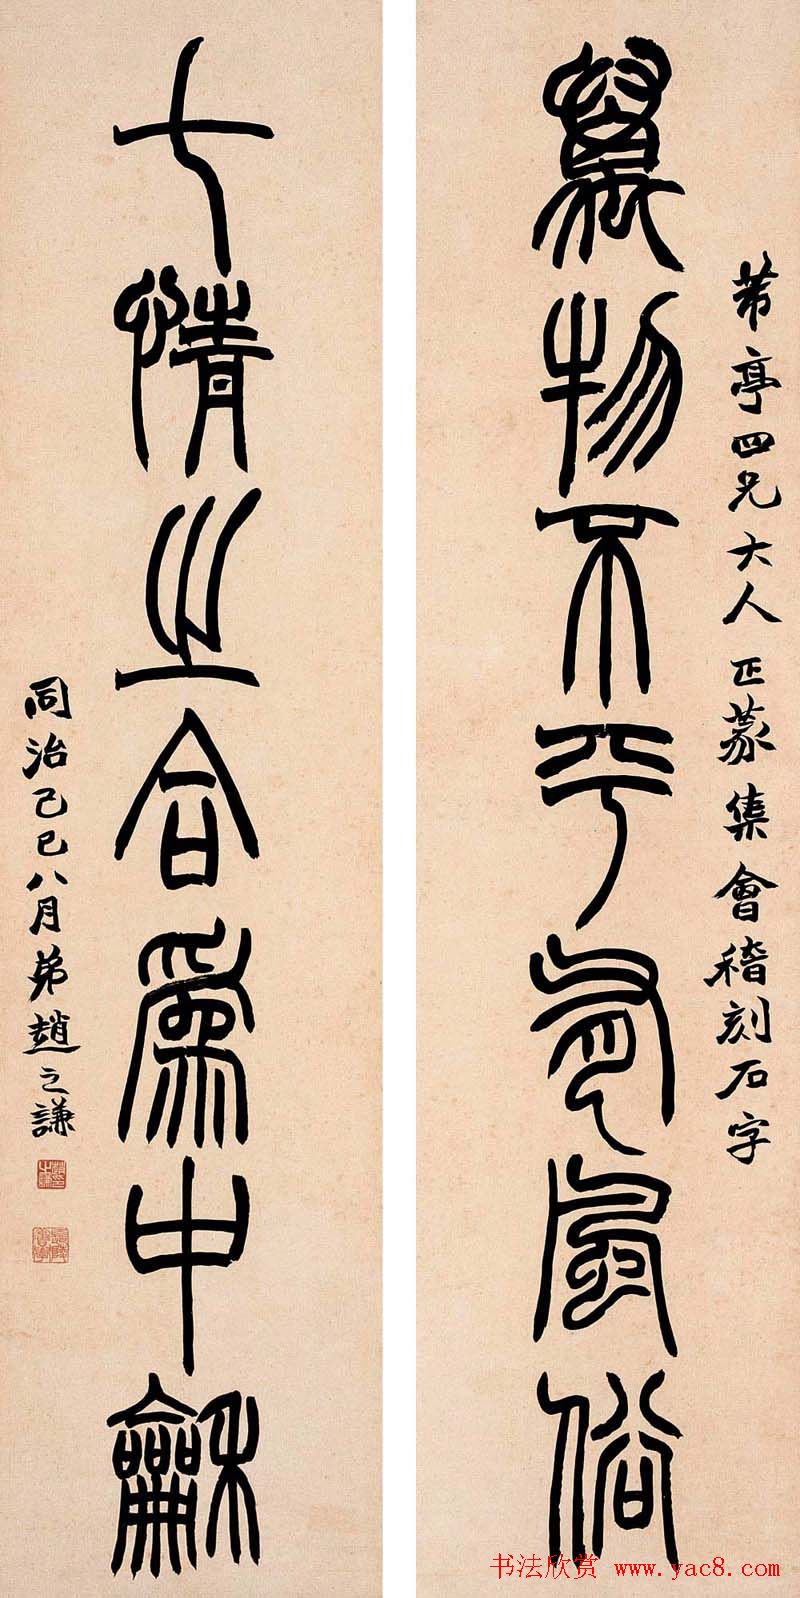 芾亭四兄大人正篆集會稽刻石字
萬物不平風俗
七情之合爲中龢
同治己巳八月弟趙之謙
书法欣赏 www.yac8.com